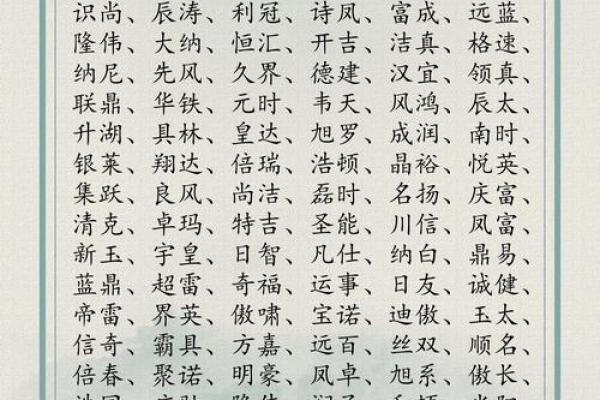 识尚、辰涛、利冠、诗凤、富成、远蓝、
隆伟、大纳、恒汇、开吉、洁真、格速、
纳尼、先风、久界、德建、汉宜、领真、
联鼎、华铁、元时、韦天、风鸿、辰太、
升湖、具林、皇达、旭罗、成润、南时、
银莱、翔达、倍瑞、浩顿、晶裕、悦英、
集跃、良风、尚洁、磊时、名扬、庆富、
清克、卓玛、特吉、圣能、川信、凤富、
新玉、宇皇、日智、凡仕、纳白、鼎易、
蓝鼎、超雷、奇福、运事、日友、诚健、
帝雷、界英、傲啸、宝诺、迪傲、玉太、
信奇、霸具、方嘉、远百、丝双、顺名、
倍春、聚诺、明豪、凤卓、旭系、傲长、